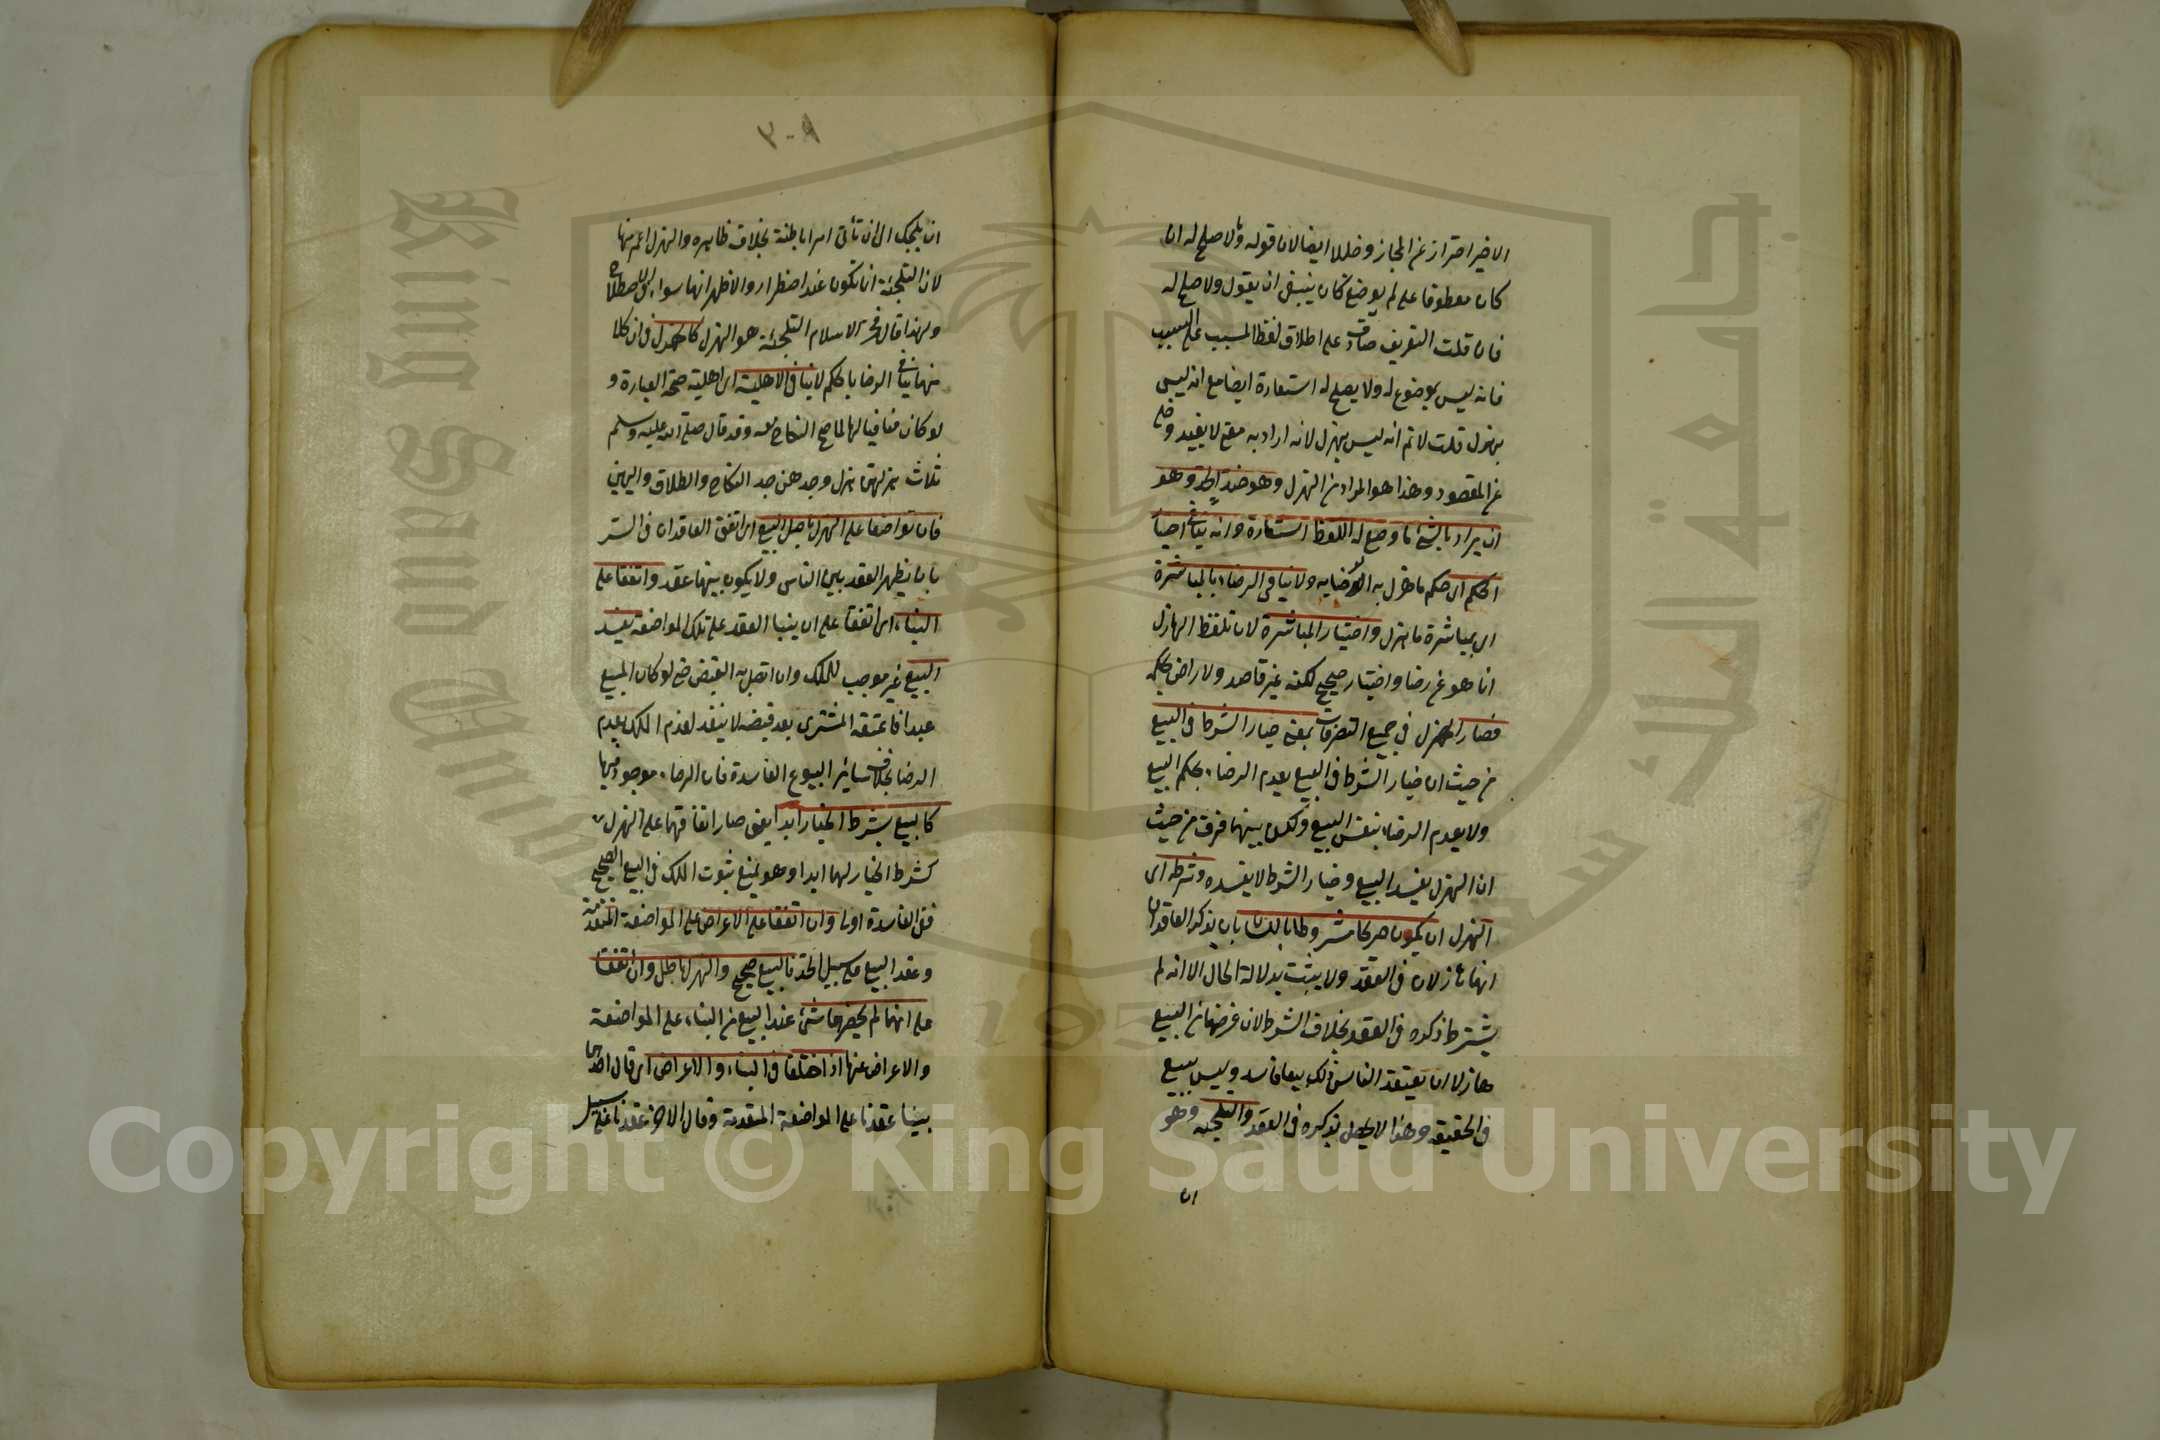 الاخير احتراز عن المجاز وخللا ايضا لان قوله ولا صلح له ان
كان معطوفا على لم يوضع كان ينبغى ان يقول ولا صلح له
فان قلت التعريف صادق على اطلاق لفظ المسبب على السبب
فانه ليس بموضوع له ولا يصلح له استعارة ايضا مع انه ليس
بهزل قلت لا نم انه ليس بهزل لانه اراد به معنى لا يفيد
عن المقصود وهذا هو المراد من الهزل وهو ضد الجد وهو
ان يراد بالشئ ما وضع له اللفظ استعارة وانه ينافى اختيار
الحكم اى حكم ما هزل به والرضا به ولا ينافى الرضاء بالمباشرة
اى بمباشرة ما هزل واختيار المباشرة لان تلفظ الهازل
انما هو عن رضا واختيار صحيح لكنه غير قاصد ولا راض بحكمه
فصار الهزل فى جميع التصرفات بمعنى خيار الشرط فى البيع
من حيث ان خيار الشرط فى البيع يعدم الرضاء بحكم البيع
ولا يعدم الرضاء بنفس البيع ولكن بينهما فرق من حيث
ان الهزل يفسد البيع وخيار الشرط لا يفسده وشرطه اى
الهزل ان يكون صريحا مشروطا باللسان بان يذكر العاقدان
انهما هازلان فى العقد ولا يثبت بدلالة الحال الا انه لم
يشترط ذكره فى العقد بخلاف الشرط لان غرضهما من البيع
هازلا ان يعتقد الناس ذلك بيعا فاسد وليس ببيع
فى الحقيقة وهذا لا يحصل بذكره فى العقد والتلجئة وهو
ان
٨٠٢
ان يلجئك الى ان تأتى امرا باطنه بخلاف ظاهره والهزل اعم منها
لان التلجئة انما تكون عند اضطرار والاظهر انهما سواء فى الاصطلاح
ولهذا قال فخر الاسلام التلجئة هو الهزل كالهزل فى ان كلا
منهما ينافى الرضا بالحكم لا ينافى الاهلية اى اهلية صحة العبارة و
لو كان منافيا لها لما صح النكاح معه وقد قال صلى الله عليه وسلم
ثلاث هزلهن هزل وجدهن جد النكاح والطلاق واليمين
فان تواضعا على الهزل باصل البيع اى اتفق العاقدان فى السر
بان يظهر العقد بين الناس ولا يكون بينهما عقد واتفقا على
البناء اى اتفقا على ان يبنيا العقد على تلك المواضعة يفسد
البيع غير موجب للملك وان اتصل به القبض حتى لو كان المبيع
عبدا فاعتقه المشترى بعد قبضه لا ينفذ لعدم الملك بعدم
الرضا بخلاف سائر البيوع الفاسدة فان الرضاء موجود فيها
كالبيع بشرط الخيار ابدا يعنى صار اتفاقهما على الهزل
كشرط الخيار لهما ابدا وهو يمنع ثبوت الملك فى البيع الصحيح
ففى الفاسدة اولى وان اتفقا على الاعراض على المواضعة المتقدمة
وعقدا البيع على سبيل الجد فالبيع صحيح والهزل باطل وان اتفقا
على انهما لم يحضرهما شئ عند البيع من البناء على المواضعة
والاعراض عنها او اختلفا فى البناء والاعراض اى قال احدهما
بنينا عقدنا على المواضعة المتقدمة وقال الاخر عقدنا على سبيل
Copyright © King Saud University
King Saud University
جامعة الملك سعود
195